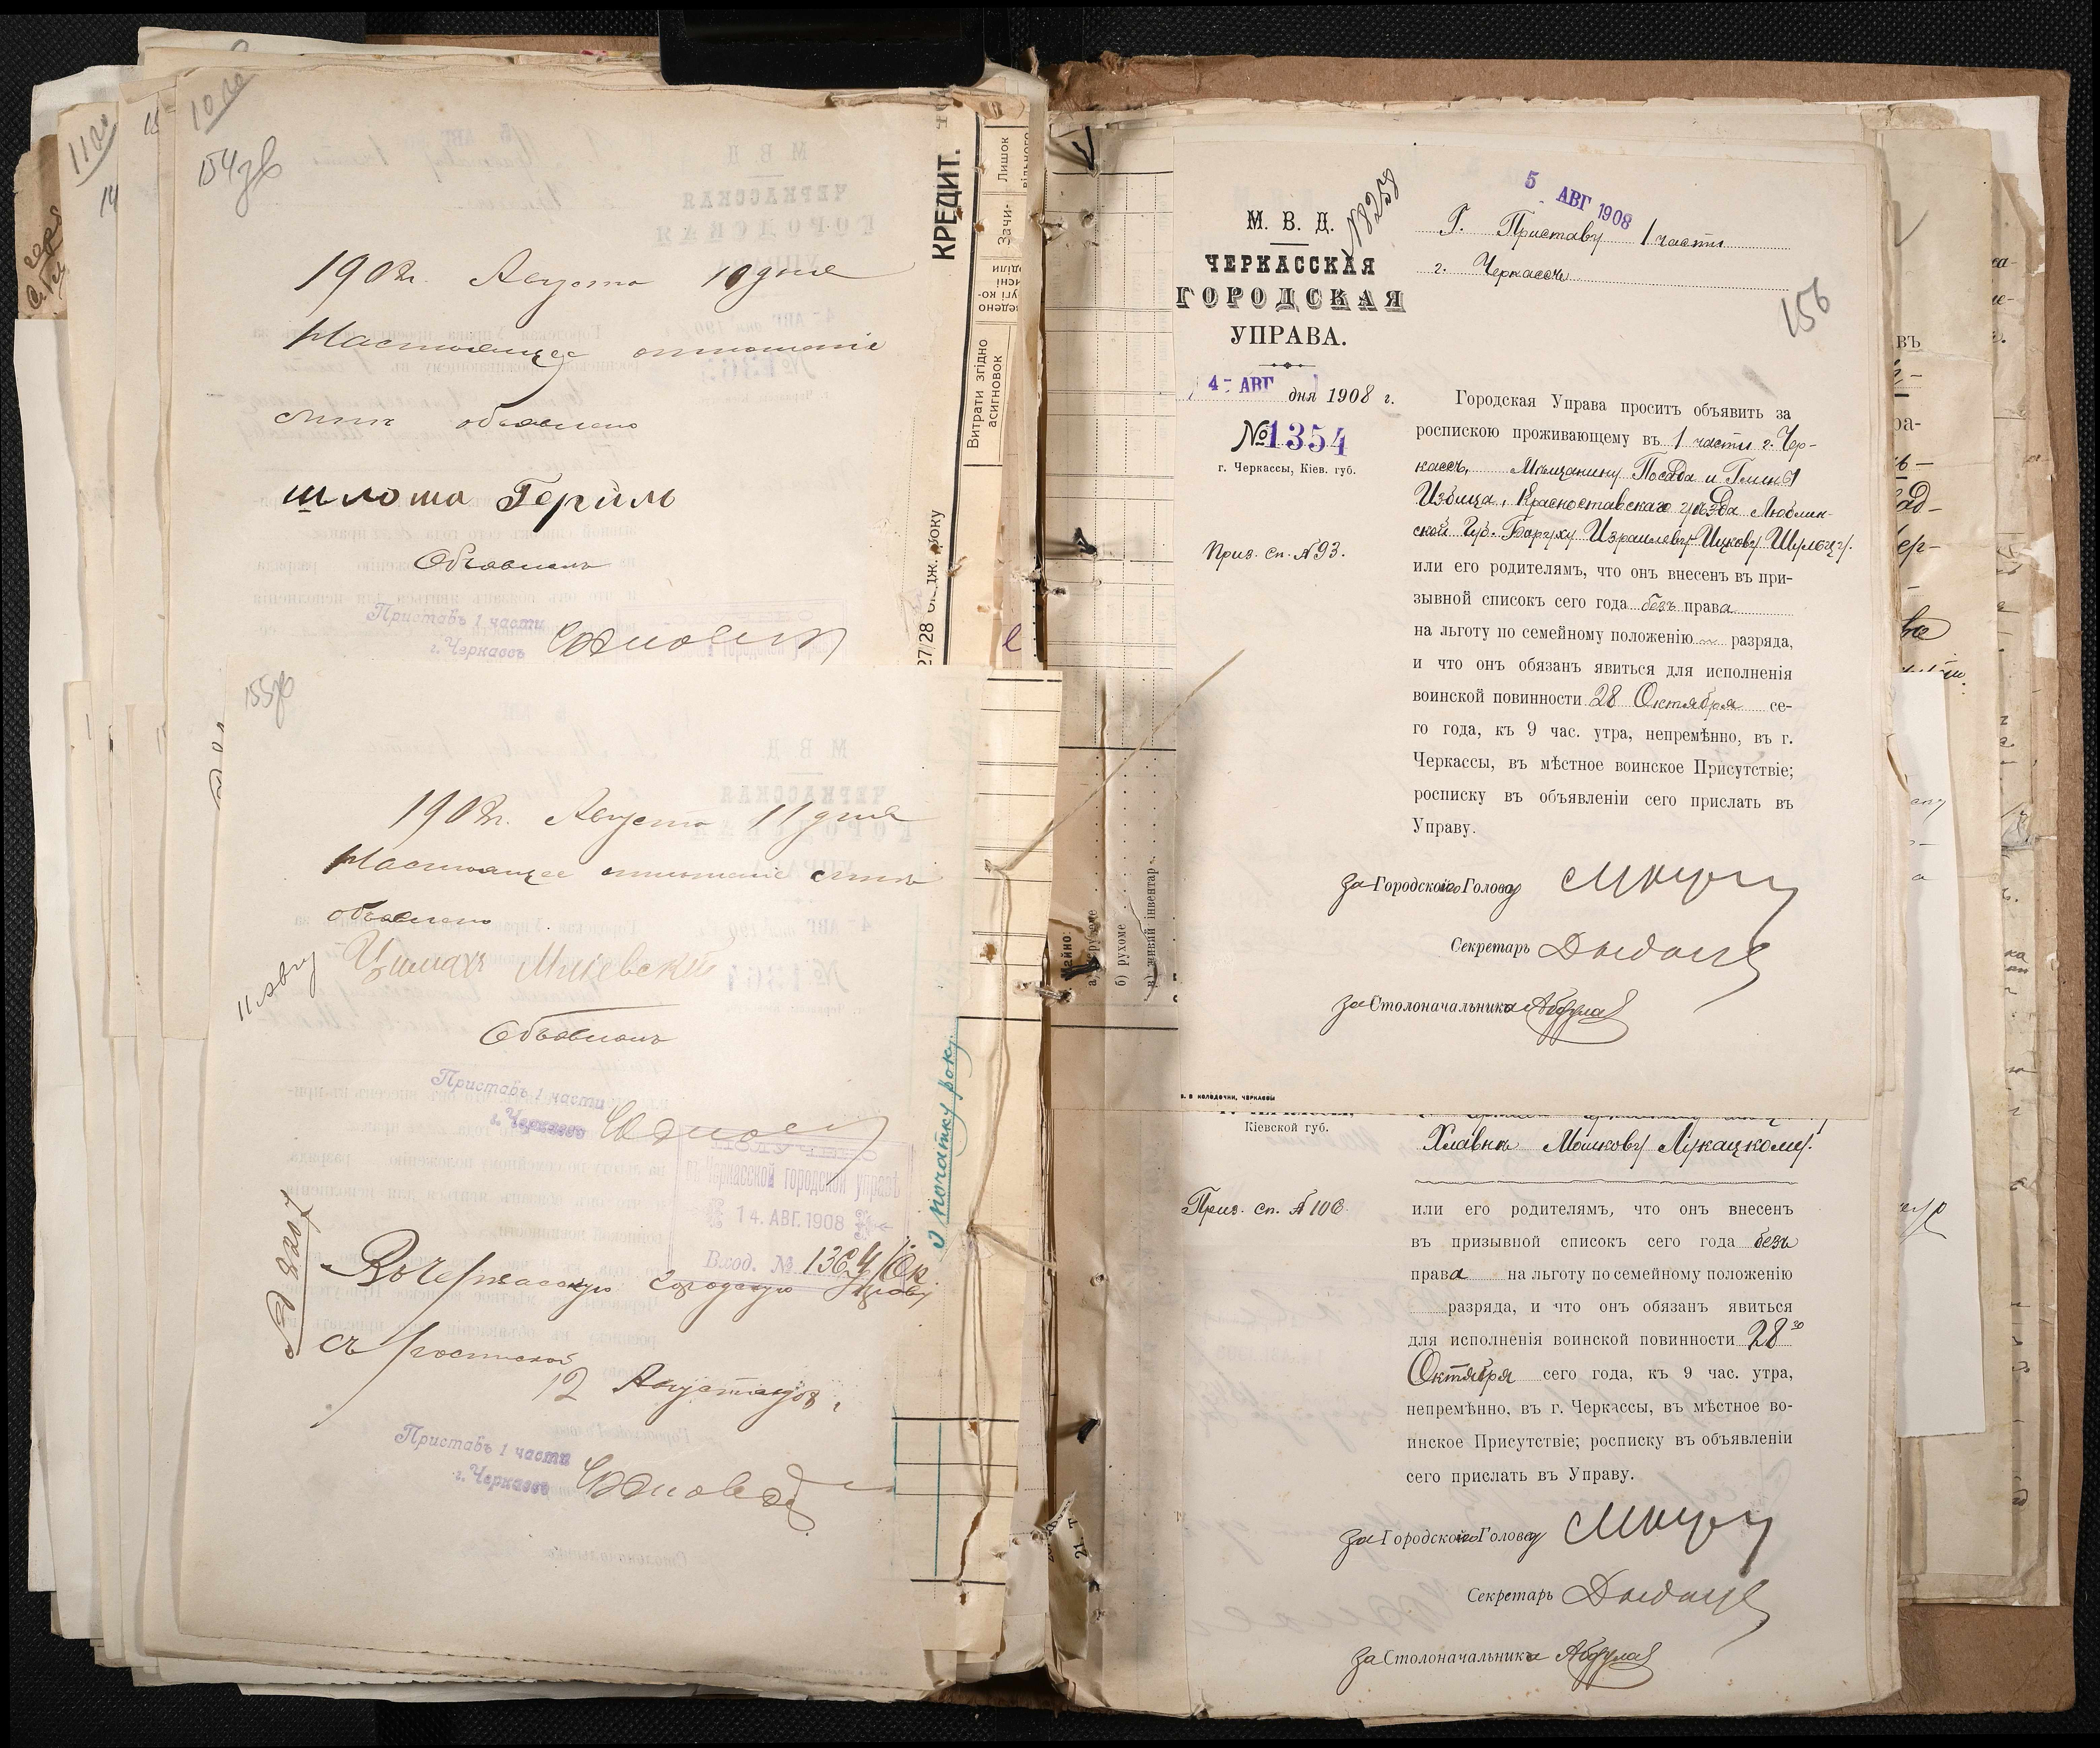 154 зв
1908 г. Августа 10 дня
Настоящее отношение
мне объявлено
шлома Герцль
Объявилъ
Приставъ 1 части
г. Черкассъ
155 зв
1908 г. Августа 11 дня
Настоящее отношеніе мнѣ
объявлено
11 Авгу
Объявилъ
Приставъ 1 части
г. Черкассъ
ПОЛУЧЕНО
въ Черкасской городской управѣ
14. АВГ. 1908
Вход. № 1364/Ок.
№ 8207
Въ Черкасскую Городскую Управу
съ роспиской
12 Августа 1908 г.
Приставъ 1 части
г. Черкассъ
КРЕДИТ.
Витрати згідно
асигновок
Лишок
вільного
з початку року.
Майно:
б) рухоме
в) живий інвентар
М. В. Д.
ЧЕРКАССКАЯ
ГОРОДСКАЯ
УПРАВА.
4- АВГ дня 1908 г.
№ 1354
г. Черкассы, Кіев. губ.
Приз. сп. № 93.
№ 8258
5 АВГ 1908
Г. Приставу 1 части
г. Черкассъ
156
Городская Управа проситъ объявить за
роспискою проживающему въ 1 части г. Чер-
кассъ, Мѣщанину Посада и Гмины
Избица, Красноставскаго уѣзда Люблин-
ской Губ. Баруху Израилеву-Ицкову Шульцу.
или его родителямъ, что онъ внесенъ въ при-
зывной списокъ сего года безъ права
на льготу по семейному положенію — разряда,
и что онъ обязанъ явиться для исполненія
воинской повинности 28 Октября се-
го года, къ 9 час. утра, непремѣнно, въ г.
Черкассы, въ мѣстное воинское Присутствіе;
росписку въ объявленіи сего прислать въ
Управу.
за Городского Голову
Секретарь
за Столоначальника
Кіевской губ.
Хлавнѣ Мошкову Лукацкому.
Приз. сп. № 106.
или его родителямъ, что онъ внесенъ
въ призывной списокъ сего года безъ
права на льготу по семейному положенію
разряда, и что онъ обязанъ явиться
для исполненія воинской повинности 28 го
Октября сего года, къ 9 час. утра,
непремѣнно, въ г. Черкассы, въ мѣстное во-
инское Присутствіе; росписку въ объявленіи
сего прислать въ Управу.
за Городского Голову
Секретарь
за Столоначальника